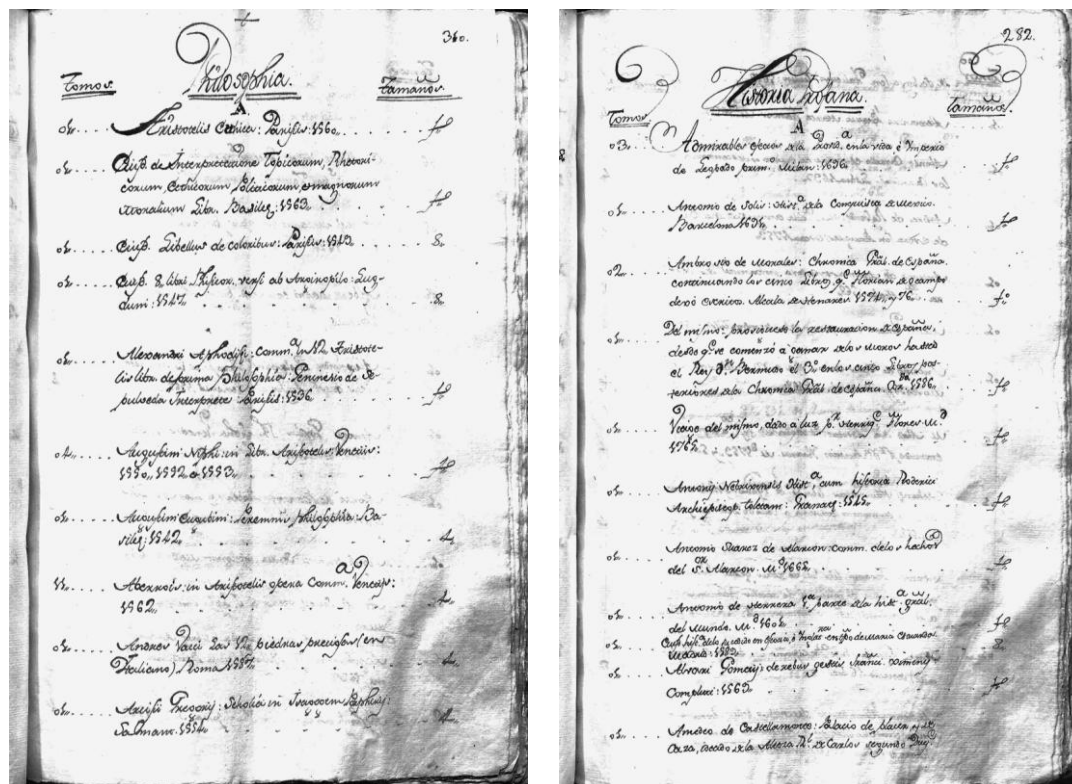 360.
Philosophia.
Tomos. Tamaños.
A
01..... Aristotelis Ethica: Parisiis: 1560. f.
01..... Eiusd. de Interpretatione Topicorum, Rhetori-
corum, Ethicorum Politicorum, et magnorum
Moralium Libr. Basileę: 1563. f.
01..... Eiusd. Libellus de coloribus: Parisiis: 1549. 8.
01..... Eiusd. 8 libri Phisicor. versi ab Argiropilo: Lug-
duni: 1547. 8.
01..... Alexandri Aphodisi: comm. in 12 Aristote-
lis libr. de prima Philosophia: Geninesio de Se-
pulveda Interprete Parisiis: 1536. f.
Augustini Niphi: in Libr. Aristotelis: Venetiis:
f.
01..... Augustini Eugubini: Perennis philosophia: Ba-
sileę: 1542. 4.
11..... Aberrois: in Aristotelis opera Comm. Venetiis:
1562 4.
01..... Andres Bacci Las 12 piedras preciosas (en
Italiano) Roma 1587. 4.
01..... Gregorij: Scholia in Isagogem
Salmant. 1554. 4.
282.
Historia Profana.
Tomos. Tamaños.
A
03..... Admirables efectos de la en la vida é Imperio
de Leopoldo prim. Milan: 1696. f.
01..... Antonio de Solis: Hist.ª de la Conquista de Mexico.
Barcelona 1691. f.
02..... Ambrosio de Morales: Chronica Gral. de España.
continuando los cinco Libros q.e Florian de Ocampo
dexó escritos. Alcala de Henares. 1574. y 76. f.º
01..... Del mismo: prosiguese la restauracion de España,
desde q.e se comenzó a ganar de los Moros hasta
el Rey D.n Bermudo el 3.º en los cinco Libros pos-
teriores de la Chronica Gral. de España. 1586. f.
01..... del mismo, dado a luz p.r Henriq. Flores M.d
1765. f.
01..... Antonij Nebrixensis Hist.ª, cum historia Roderici
Archiepiscop. toletani: Granatę: 1545. f.
01..... Antonio Suarez de Alarcon: comm. de los hechos
del S.or Alarcon M.d 1665. f.
01..... Antonio de Herrera 1.ª parte de la hist.ª gral.
del Mundo. M.d 1601. f.
01..... hist.ª de lo sucedido en Escocia, é Inglat.ra en de Maria Estuarda
Madrid: 1589. 8.
01..... Alvari Gomecij: de rebus gestis Franci. Ximenij
Compluti: 1569. f.
01..... Amedeo de Castellamonte: Palacio de placer y de
Caza, de la Alteza R.l de Carlos segundo